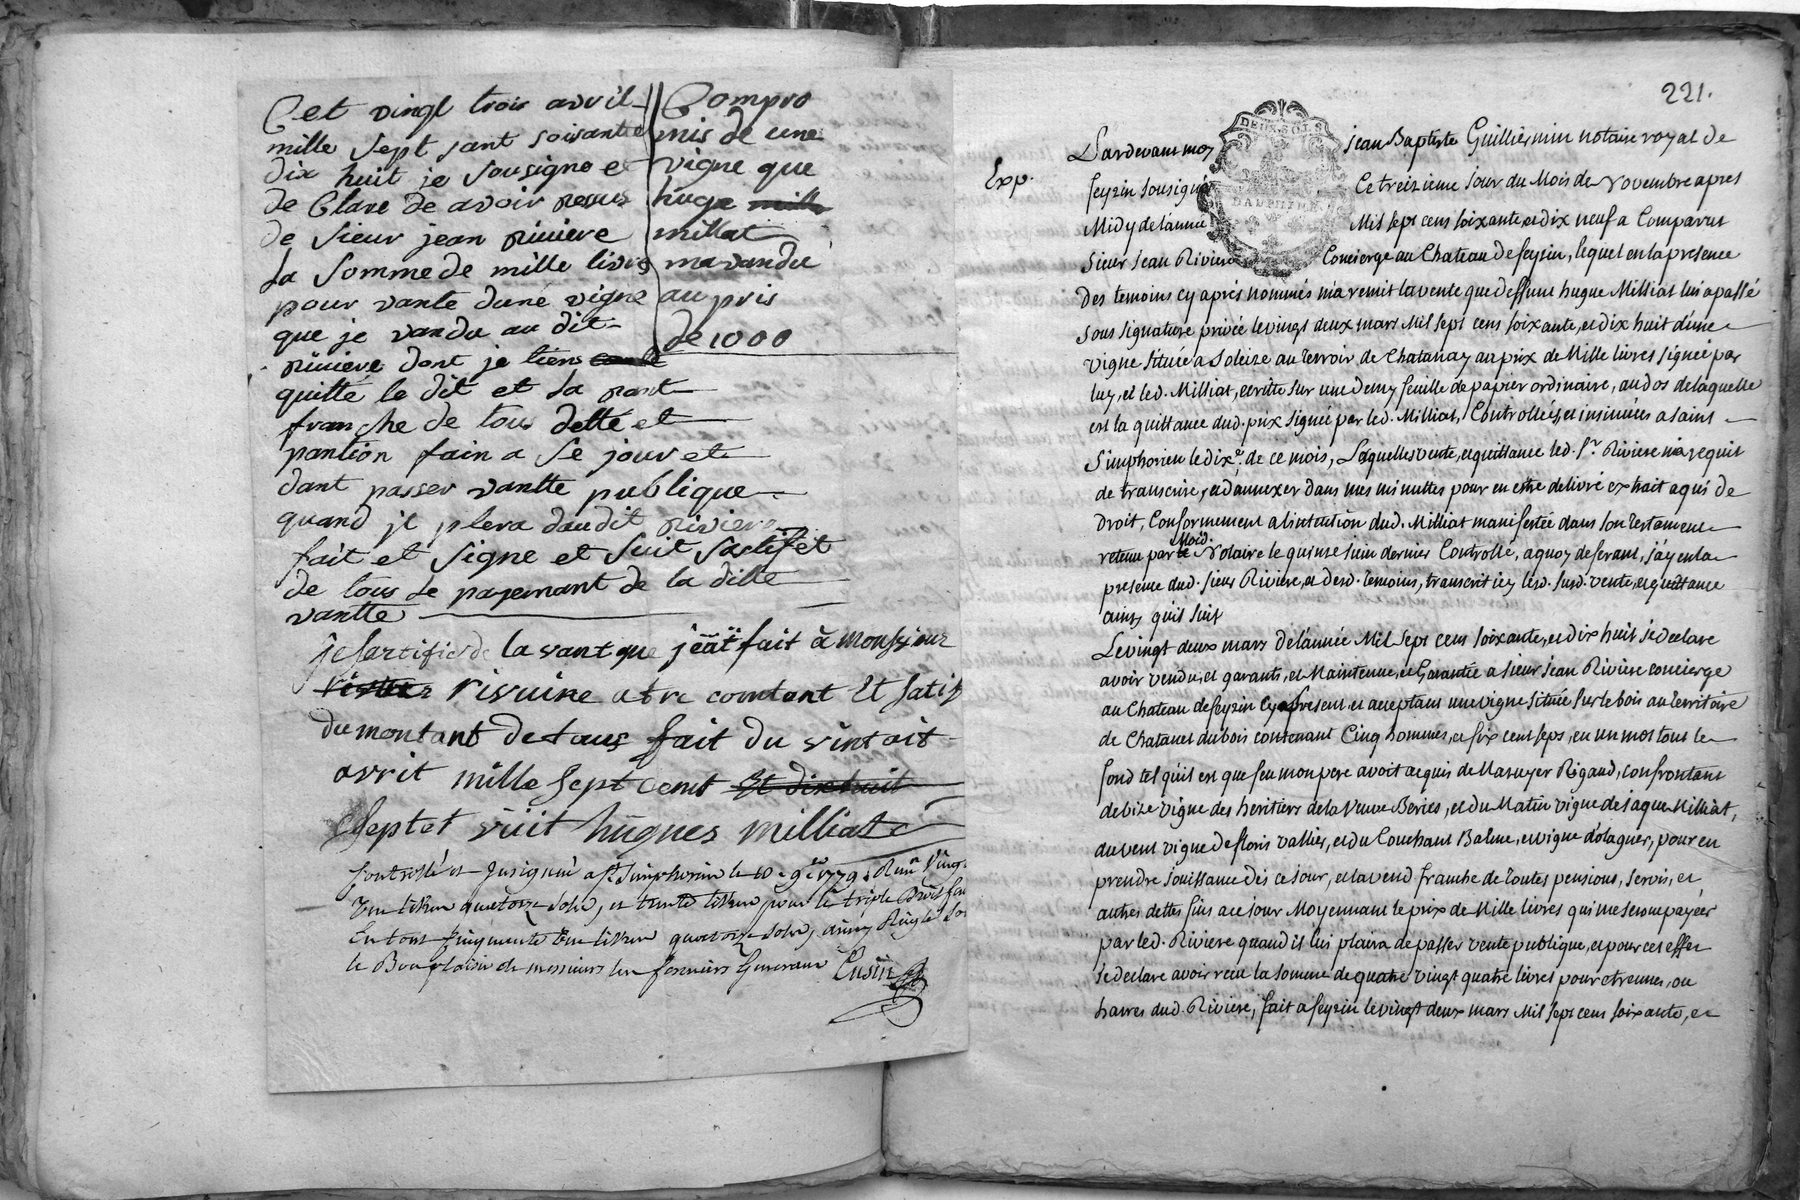 Cet vingt trois avril
mille sept sant soisantte
dix huit je sousigne et
de Clare de avoir resus
de sieur jean riviere
la somme de mille livres
pour vante dune vigne
que je vandu au dit
riviere dont je tiens
quitte le dit et la rant
franche de tous dette et
pantion fain a se jour et
dant passer vantte publique
quand je plera daudit riviere
fait et signe et suit satifet
de tous le payemant de la ditte
vantte
Compro
mis de une
vigne que
huge mille
millat
ma vandu
au pris
de 1000
je sartifie de la vant que j'eat fait à monssieur
risuine atre contant Et satif
du montant de tous fait du vint oit
avrit mille sept cent Et dixhuit
septet vuit hugues milliat
Controllé et Insignué a St Simphorien le 10 e 9bre 1779
livres quatorze sols, et trente livres pour le triple Droit
En tout Cinquante une livres quatorze sols,
le Bon plaisir de messieurs les fermiers Generaux Cusin
221.
Exp.
DEUX SOLS
DAUPHINE
Pardevant moy jean Baptiste Guilliermin notaire royal de
feyzin sousigné Ce treizieme jour du Mois de Novembre apres
Midy de l'année Mil sept cens soixante et dix neuf a Comparut
Sieur Jean Riviere Concierge au Chateau de feyzin, lequel en la presence
des temoins cy aprés nommés m'a remit la vente que deffunt hugue Milliat lui a passé
sous signature privée le vingt deux mars Mil sept cens soixante, et dix huit d'une
vigne située a Soleize au terroir de Chatanay au prix de Mille livres signée par
luy, et led. Milliat, ecritte sur une demy feuille de papier ordinaire, au dos de laquelle
est la quittance dud. prix signée par led. Milliat, Controllées et insinuées a saint
Simphorien le dixe. de ce mois, Lesquelles vente, et quittance led. Sr. Riviere m'a requit
de transcrire, et d'annexer dans mes minuttes pour en estre delivré extrait a qui de
droit, Conformement a l'intention dud. Milliat manifestée dans son testament
retenu par Moid. Notaire le quinze juin dernier Controllé, a quoy deferant, j'ay en la
presence dud. sieur Riviere, et desd. temoins, transcrit icy lesd. susd. vente, et quittance
ainsy qu'il suit
Le vingt deux mars de l'année Mil sept cens soixante, et dix huit je declare
avoir vendu, et garanti, et Maintenue, et Garantie a sieur jean Riviere concierge
au Chateau de feyzin Cy present, et acceptant une vigne située sur le bois au territoire
de Chatanet du bois contenant Cinq hommés, et six cent seps, en un mot tout le
fond tel qu'il est que feu mon pere avoit acquis de Masuyer Rigaud, confrontant
de bize vigne des heritiers de la Veuve Beries, et du Matin vigne de jaque Milliat,
du vent vigne de floris vallier, et du Couchant Balme, et vigne d'olagner, pour en
prendre jouissance dès ce jour, et la vend franche de toutes pensions, servis, et
autres dettes jus a ce jour Moyennant le prix de Mille livres qui me seront payéer
par led. Riviere quand il lui plaira de passer vente publique, et pour cet effet
je declare avoir reçu la somme de quatre vingt quatre livres pour etrennes, ou
harres dud. Riviere, fait a feyzin le vingt deux mars Mil sept cens soixante, et